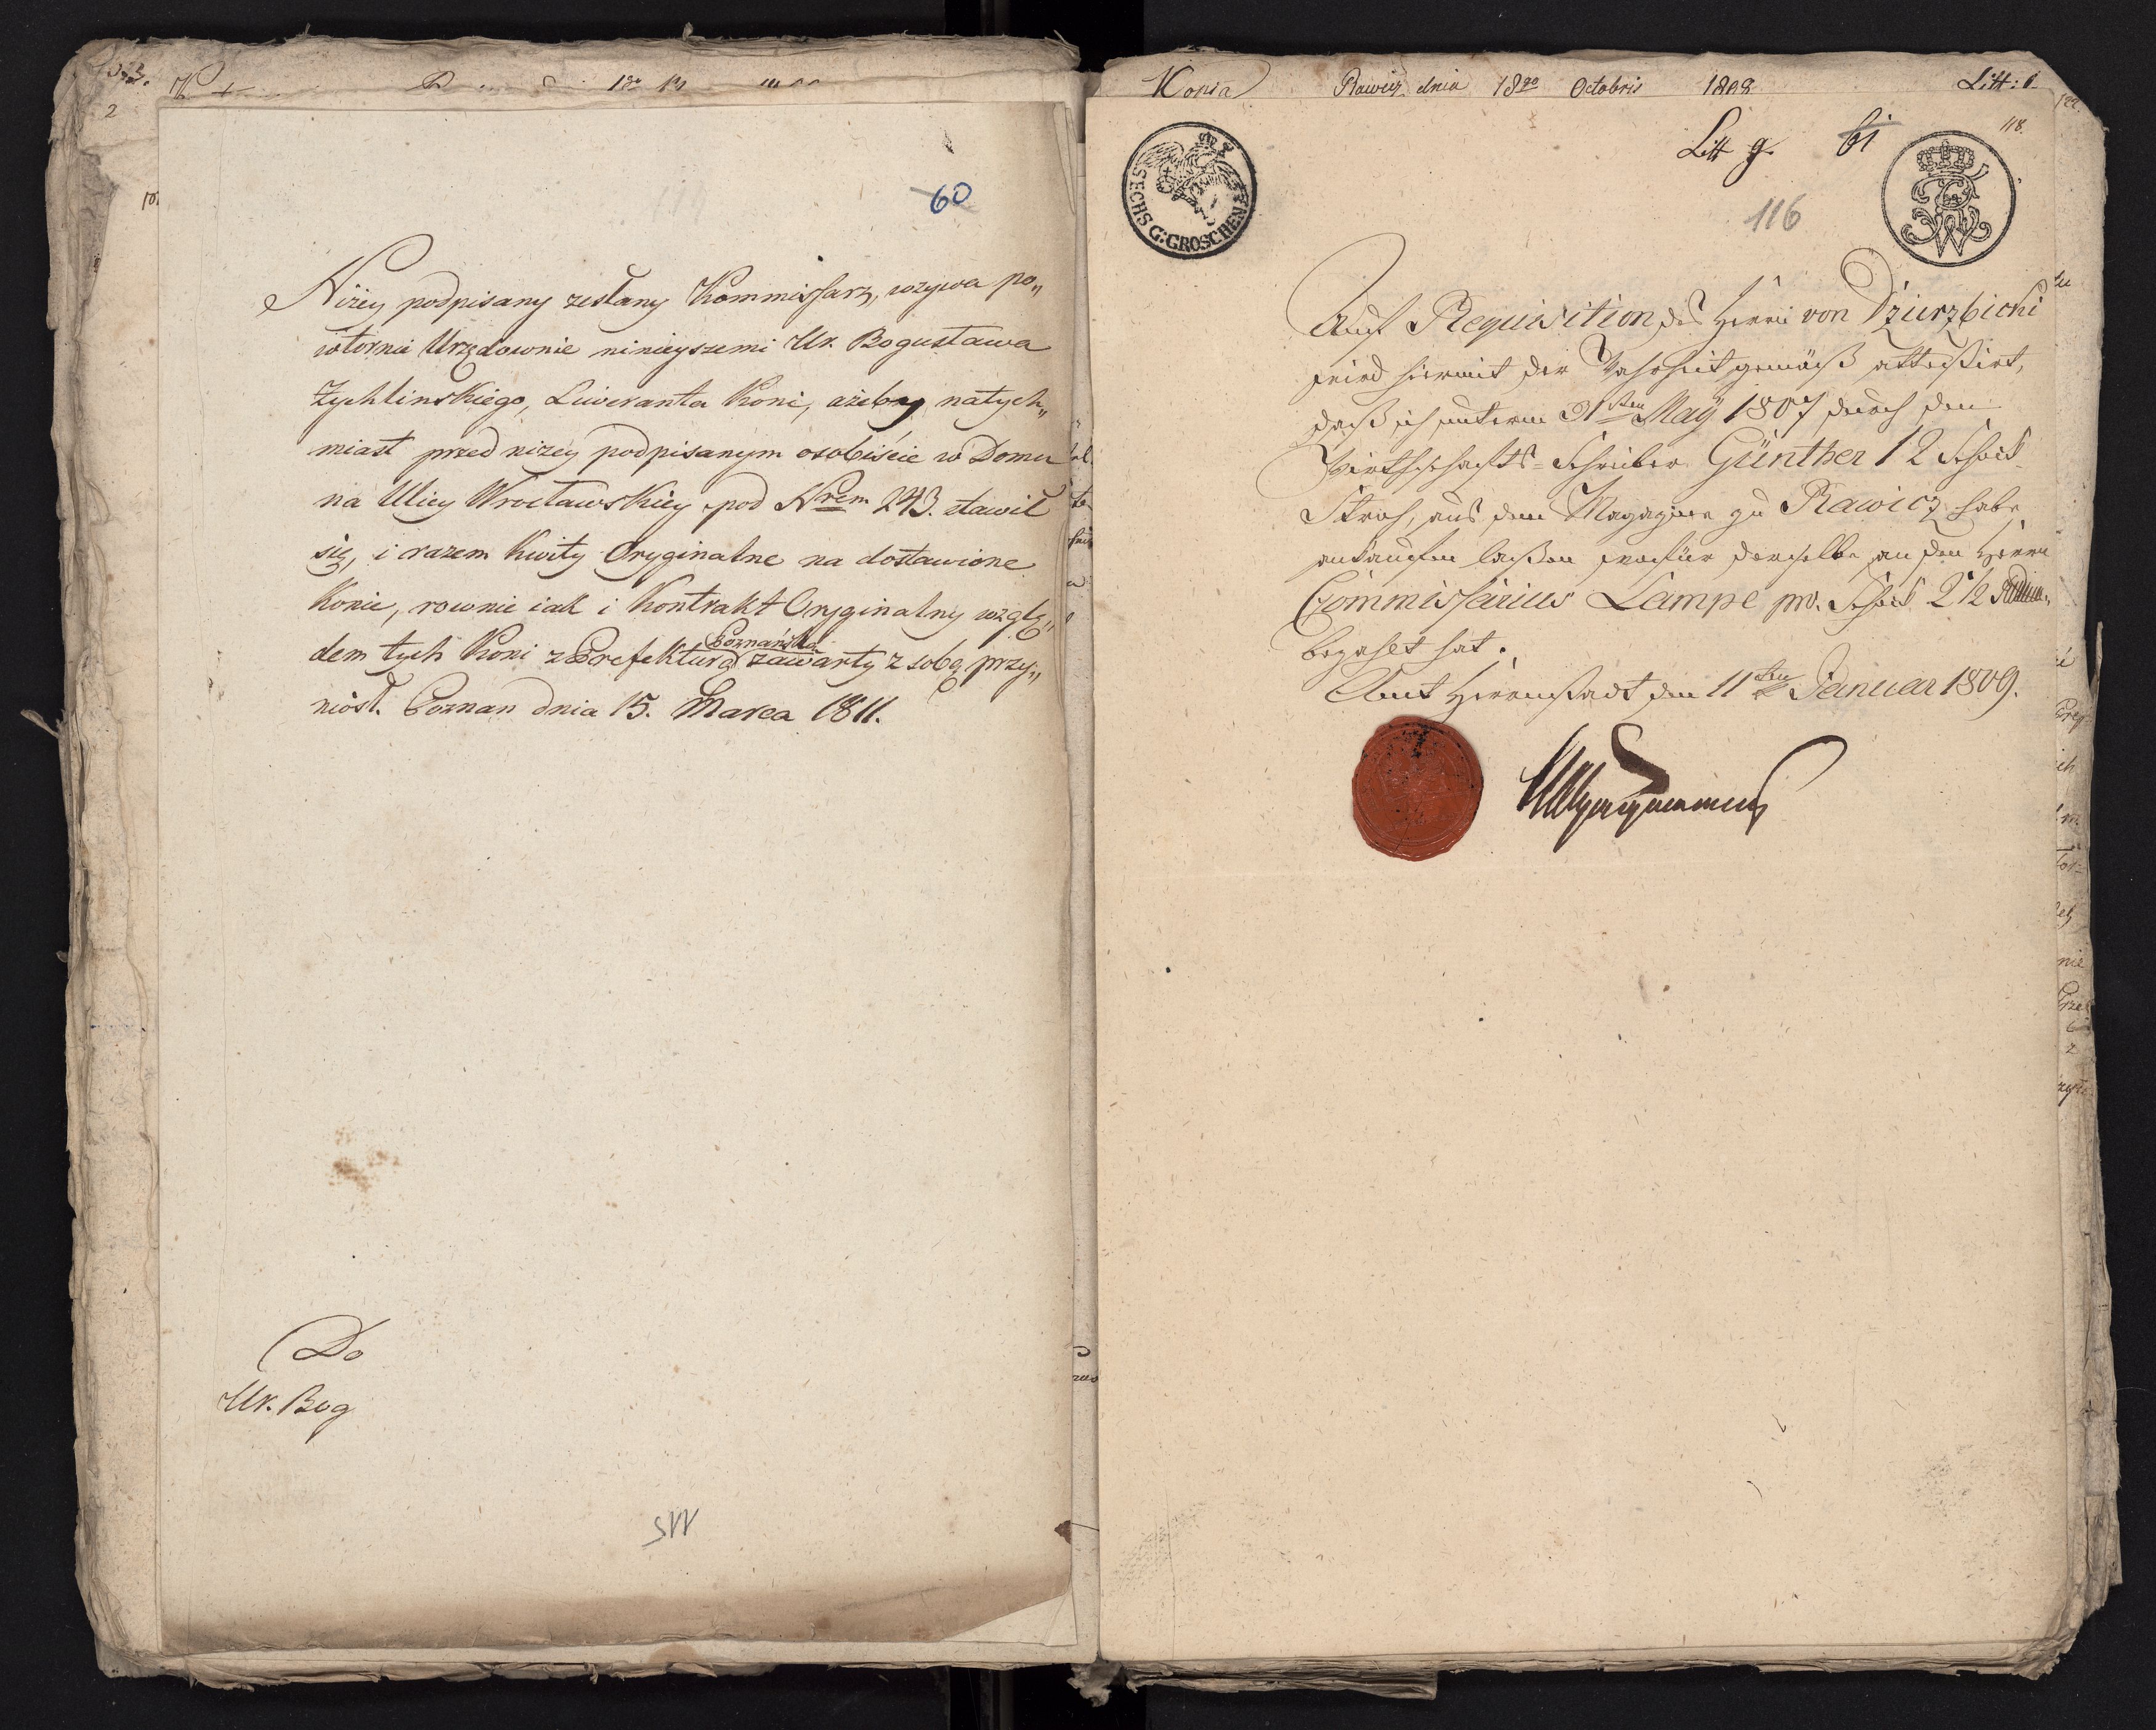 60
Niżey podpisany zesłany Kommissarz, wzywa po„
wtornie Urzędownie ninieyszemi Ur. Bogusława
Zychlinskiego, Liweranta Koni, ażeby natych„
miast przed niżey podpisanym osobiście w Domu
na Ulicy Wrocławskiey pod Nrem 243. stawił
się, i razem Kwity Oryginalne na dostawione
Konie, rownie iak i Kontrakt Oryginalny wzglę„
dem tych Koni z Prefekturą Poznańską zawarty z sobą przy„
niósł. Poznan dnia 15. Marca 1811.
Do
Ur. Bog
Kopia Rawicz dnia 18go Octobris 1808 Litt:
Litt g. 61
118.
116
SECHS G:GROSCHEN
Auf Requisition des Herrn von Dziurzbicki
wird hiermit der Wahrheit gemäß attestirt,
daß ich unterm 31sten May 1807 durch den
Wirthschafts-Schreiber Günther 12 Schock
Stroh, aus dem Magazine zu Rawicz habe
ankaufen laßen wofür derselbe an den Herrn
Commissarius Lampe pro. Schock 2 1/2
bezahlt hat.
Amt Herrnstadt den 11ten Januar 1809.